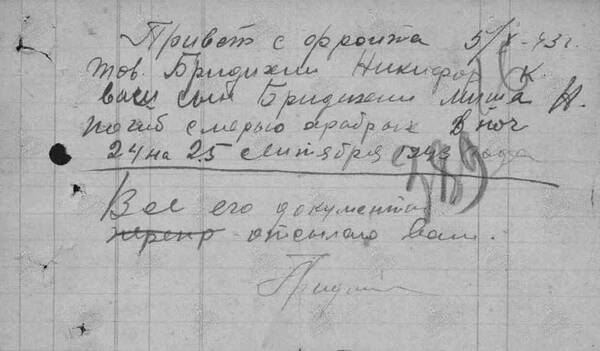 Привет с фронта 5/X-43 г.
тов. Бридихин Никифор К.
ваш сын Бридихин Миша Н.
погиб смертью храбрых в ноч
24 на 25 сентября 1943 года
Все его документы
отсылаю вам.